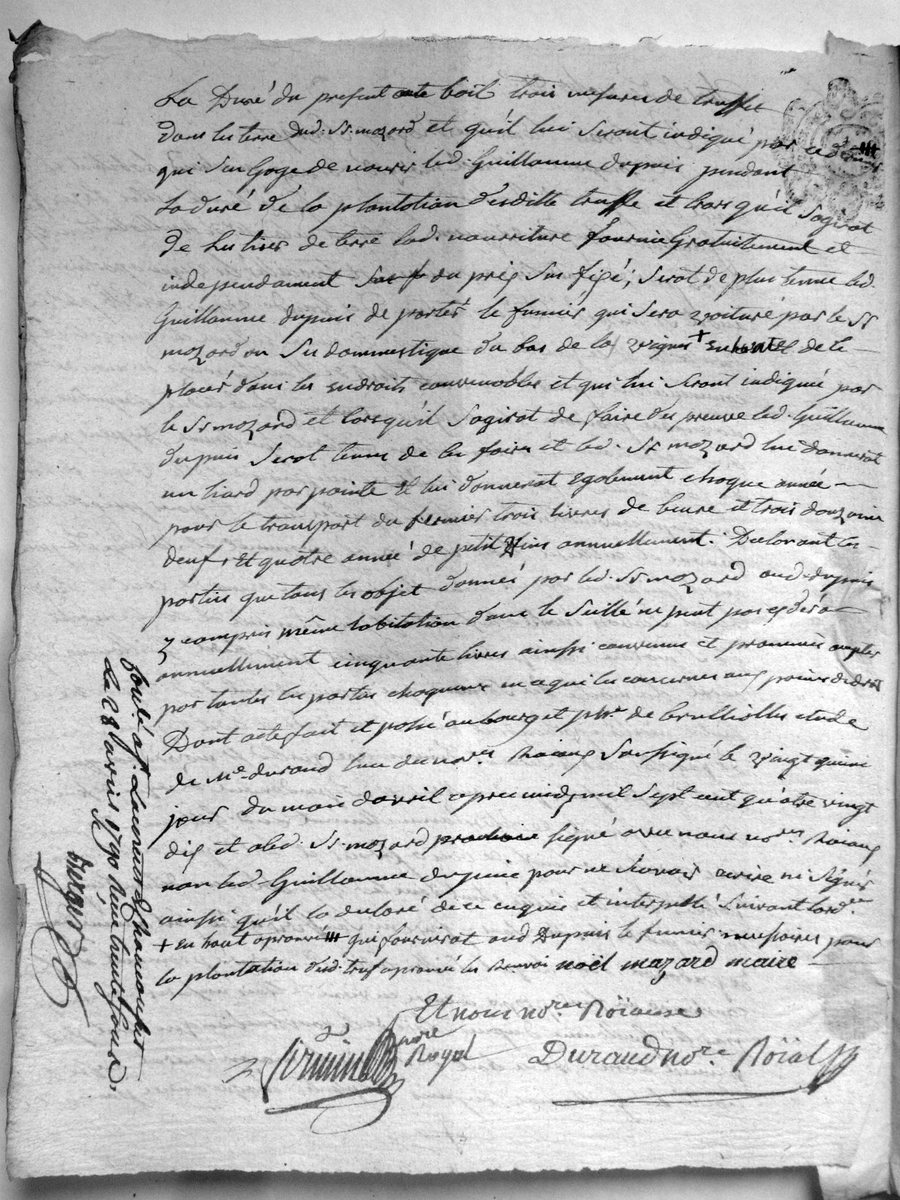 La Duré du present acte boit trois mesures de truffe
dans les terre dud. Sr. mozard et qu'il lui seront indiqué par ce dernier
qui s'en gage de nourir led. Guillaume dupuis pendant
la duré de la plantation desditte truffe et lors qu'il sagirat
de les tirer de terre lad. nourriture fournie Gratuitement et
independament du prix sus fixé; serat de plus tenue led.
Guillaume dupuis de porter le fumier qui sera voituré par le Sr
mozard ou sa dommestique du bas de la vigne + de le
placer dans les endroits convenables et qui lui seront indiquée par
le Sr mozard et lorsqu'il sagirat de faire du preuve led. Guillaume
dupuis serat tenue de les faire et led. Sr mozard lui donnerat
un liard par pointe et lui donnerat egalement chaque année
pour le transport du fermier trois livres de beure et trois douzaine
deufs et quatre année de petit vins annuellement. Declarant les
parties que tous les objet donnés par led. Sr mozard aud. dupuis
y compris même labitation dans le ne peut pas exédér a
annuellement cinquante livres ainsi convenus et promuis
par toutes les parties chaqueune en ce qui les concerne aux peines de droit
Dont acte fait et passé au bourg et de brulliolles etude
de Me. durand lun des nores. Roiaux soussigné le vingt
jour du mois davril apres midy mil sept cent quatre vingt
dix et a led. Sr. mozard signé avec nous nores Roiaux
non led. Guillaume dupuis pour ne scavoir ecrire ni signér
ainsi qu'il la declaré de ce enquis et interpellé suivant lordce
+ en haut aprouvé qui fournirat aud Dupuis le fumier necessaires pour
la plantation aprouvé les renvoi noël mazard maire
Et nous nores Roïause
nore
Royal
Durand nore. Roïal
Le 28 avril 1790